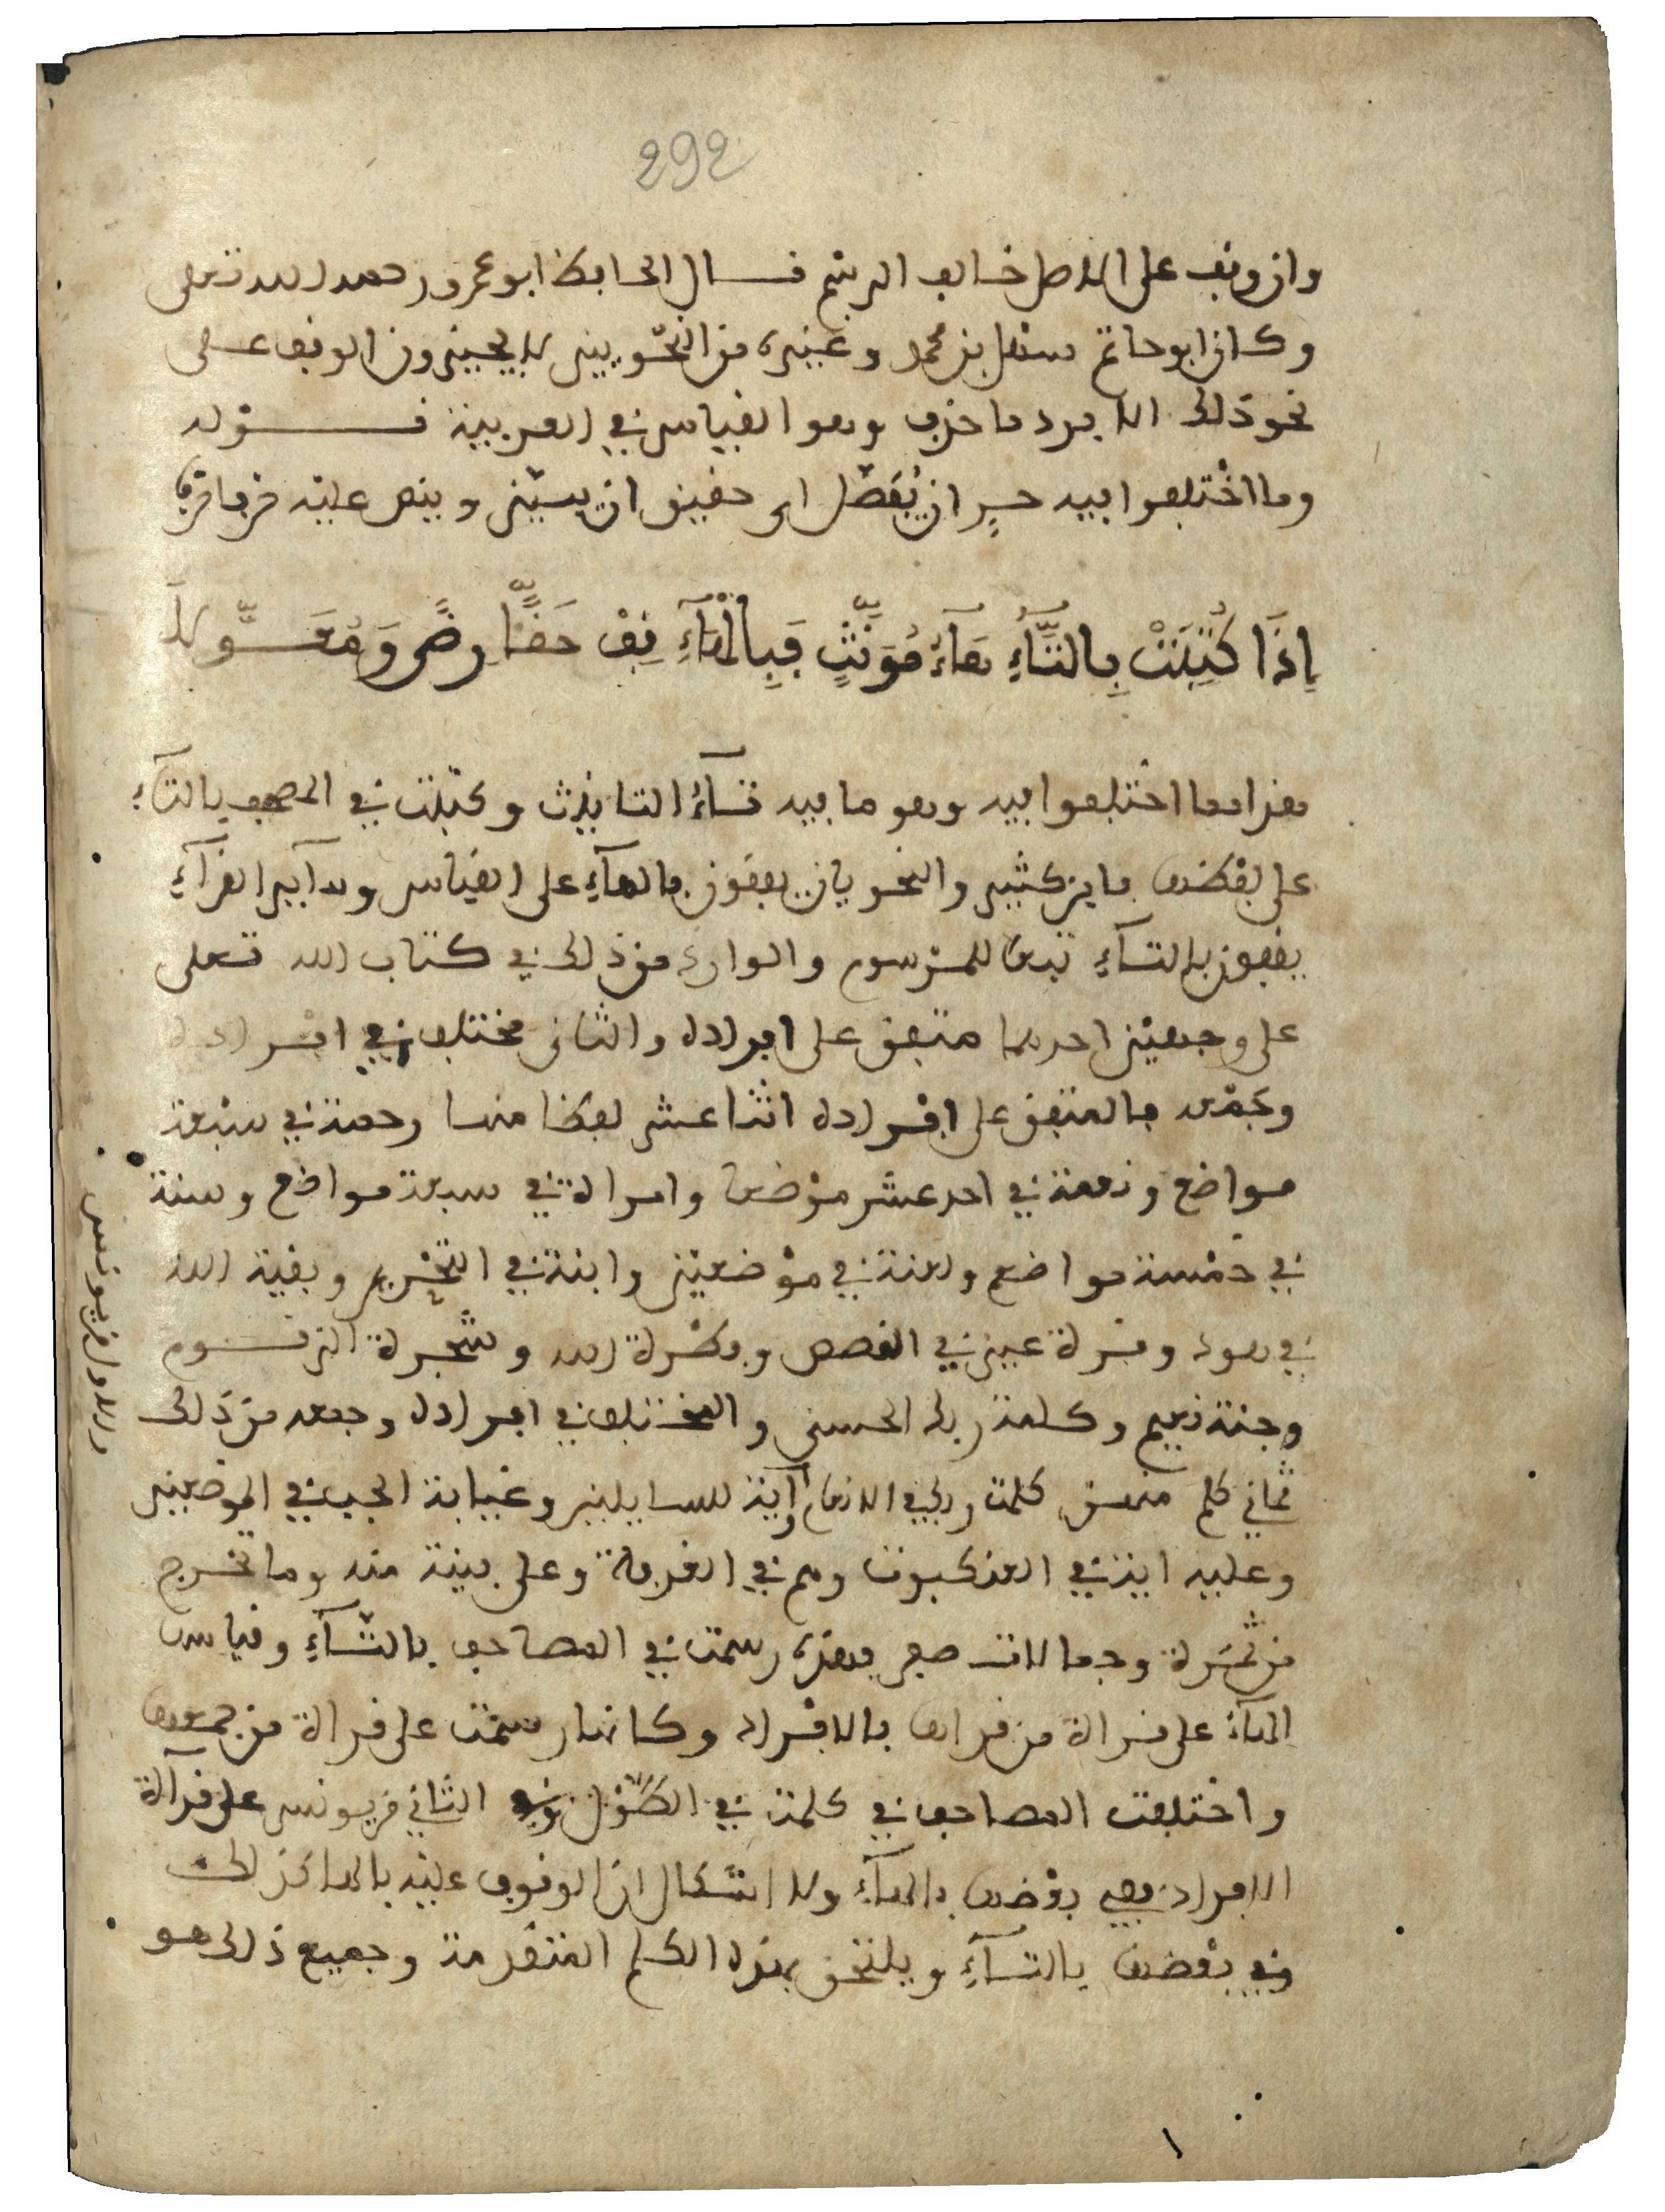 292
وان وقف على الاصل خالف الرسم قال الحافظ ابو عمرو رحمه الله تعلى
وكان ابو حاتم سهل بن محمد وغيره من النحويين لا يجيزون الوقف على
نحو ذلك الا برد ما حذف وهو القياس في العربية قوله
وما اختلفوا فيه حرٍ ان يُفَصَّلا اي حقيق ان يبين وينص عليه حرفا حرفا
إِذَا كُتِبَتْ بِالتَّآءِ هَآءُ مُؤَنَّثٍ فَبِالْهَآءِ قِفْ حَقًّا رِضًى وَمُعَــوِّلَا
هذا مما اختلفوا فيه وهو ما فيه تآءُ التانيث وكتبت في المصحف بالتآءِ
على لفظها فابن كثير والنحويان يقفون بالهآءِ على القياس وسآير القرآءِ
يقفون بالتآءِ تبعا للمرسوم والوارد من ذلك في كتاب الله تعلى
على وجهين احدهما متفق على افراده والثانى مختلف في افراده
وجمعه فالمتفق على افراده اثنا عشر لفظا منها رحمة في سبعة
مواضع ونعمة في احد عشر موضعا وامراة في سبعة مواضع وسنة
في خمسة مواضع ولعنة في موضعين وابنة في التحريم وبقية الله
في هود وقرة عين في القصص وفطرة الله وشجرة الزقوم
وجنة نعيم وكلمة ربك الحسنى والمختلف في افراده وجمعه من ذلك
ثماني كلم منهن كلمت ربك في الانعام وآية للسايلين وغيابة الجب في الموضعين
وعليه اية في العنكبوت وهم في الغرفة وعلى بينة منه وما تخرج
من ثمرة وجمالات صفر فهذه رسمت في المصاحف بالتآءِ وقياس
الهآءِ على قراءة من قراها بالافراد وكانها رسمت على قراءة من جمعها
واختلفت المصاحف في كلمة في الطَّوْل وفي الثاني من يونس على قرآءة
الافراد ففي بعضها بالهآءِ ولا اشكال ان الوقوف عليه بالها كذلك
وفي بعضها بالتآءِ ويلتحق بهذه الكلم المتقدمة وجميع ذلك هو
والاول من يونس